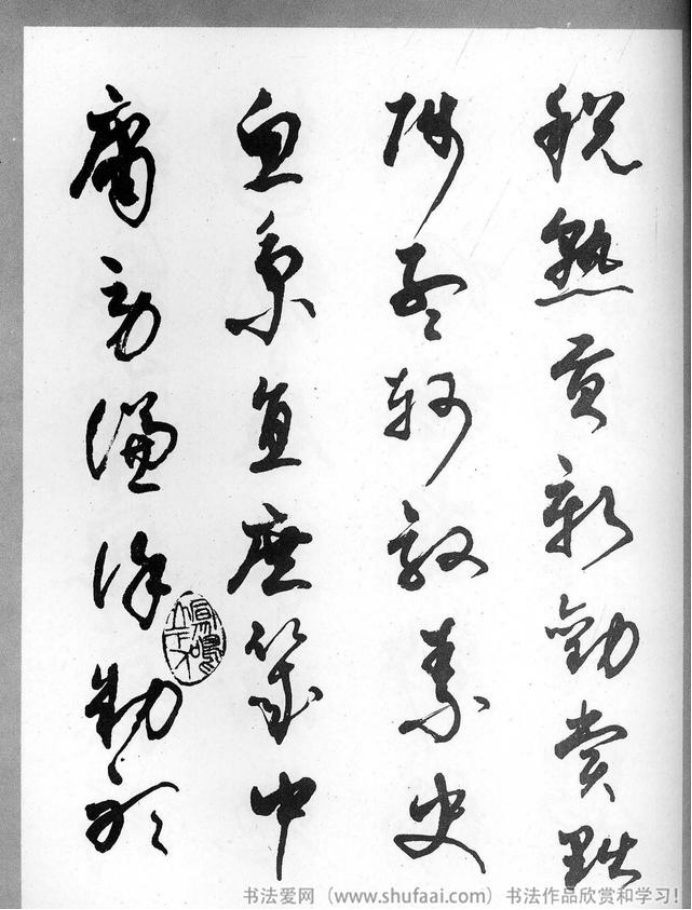 税熟贡新劝赏黜
陟孟轲敦素史
鱼秉直庶几中
庸劳谦谨敕聆
书法爱网（www.shufaai.com）书法作品欣赏和学习！